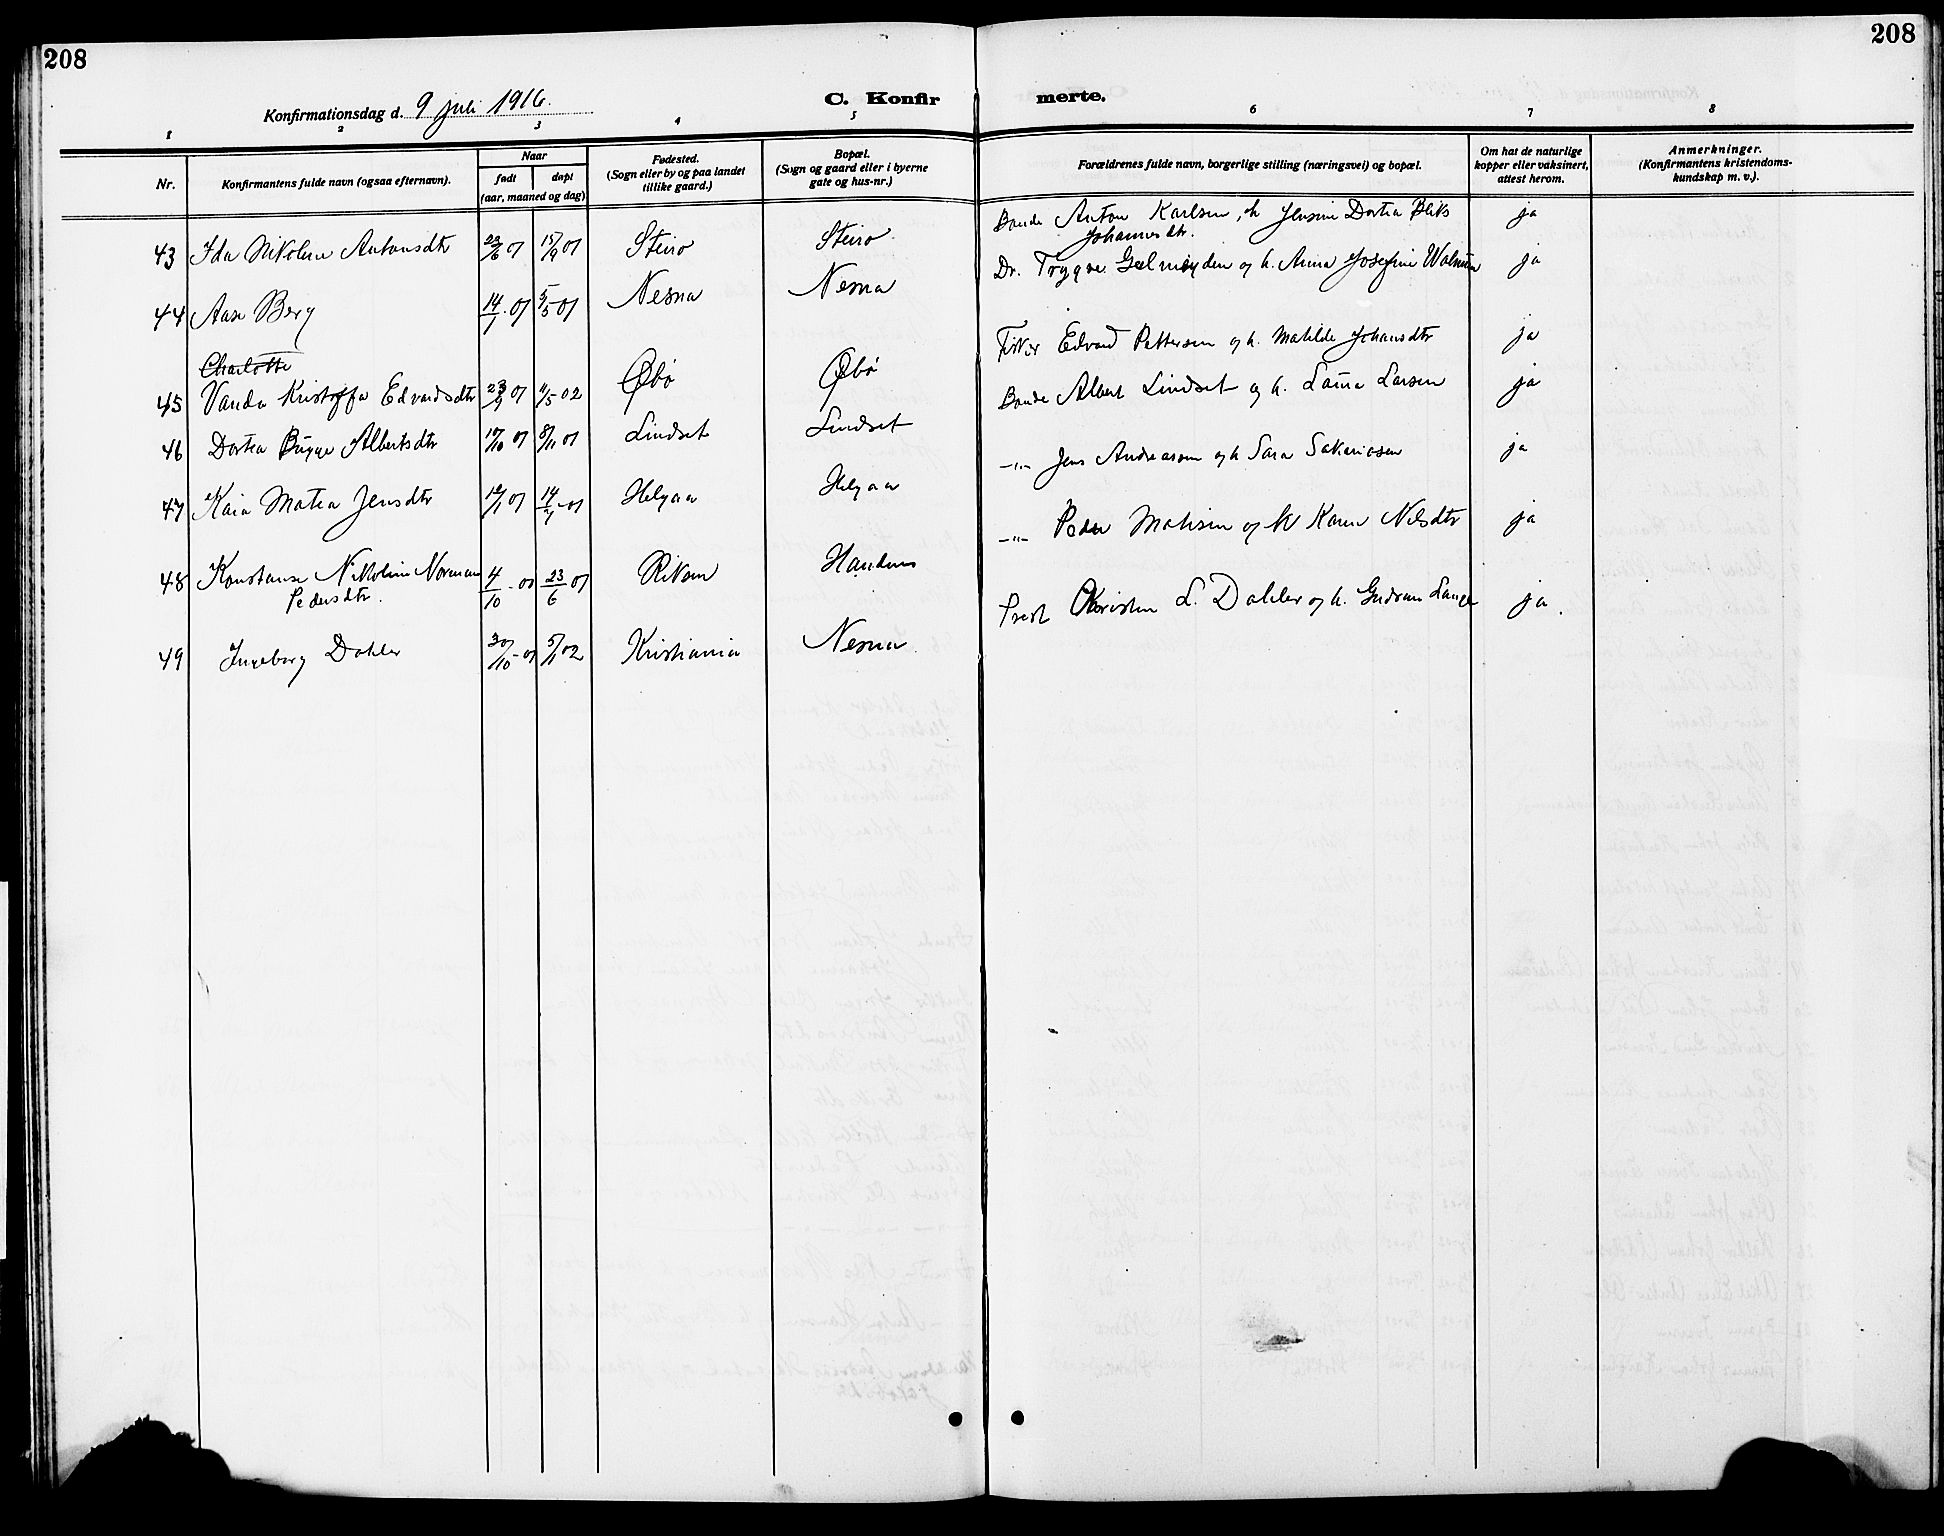 208
208
Konfirmationsdag d. 9 juli 1916.
C. Konfirmerte.
1 2 3 4 5 6 7 8
Nr.
Konfirmantens fulde navn (ogsaa efternavn).
Naar
født
døpt
(aar, maaned og dag)
Fødested.
(Sogn eller by og paa landet
tillike gaard.)
Bopæl.
(Sogn og gaard eller i byerne
gate og hus-nr.)
Forældrenes fulde navn, borgerlige stilling (næringsvei) og bopæl.
Om hat de naturlige
kopper eller vaksinert,
attest herom.
Anmerkninger.
(Konfirmantens kristendoms-
kundskap m. v.).
43 Ida Nikoline Antonsdtr 22/6 01 15/9 01 Steiro Steiro. Bonde Anton Karlsen, h Jensine Dortea Bliks ja
Johannesdtr.
44 Aase Berg 14/1 01 5/5 01 Nesna Nesna Dr. Trygve og h. Anna Josefine ja
Charlotte
45 Vanda Kristoffa Edvardsdtr 23/9 01 11/5 02 Øbø Øbø Fisker Edvard Pettersen og h. Matilde Johansdtr ja
46 Dortea Bugge Albertsdtr 10/10 01 8/11 01 Lindset Lindset Bonde Albert Lindset og h. Laura Larsen ja
47 Kaia Matea Jensdtr 01 14/7 01 Helgaa Helgaa -"- Jens Andreassen og h Sara Sakariasen ja
48 Konstanse Nikoline Norman 4/10 00 23/6 01 Riksen -"- Peder Matisen og h Karen Nilsdtr ja
Pedersdtr.
49 Ingeborg Dahler 30/10 01 5/1 02 Kristiania Nesna. Prest Kristen L. Dahler og h. Gudrun Lange ja.